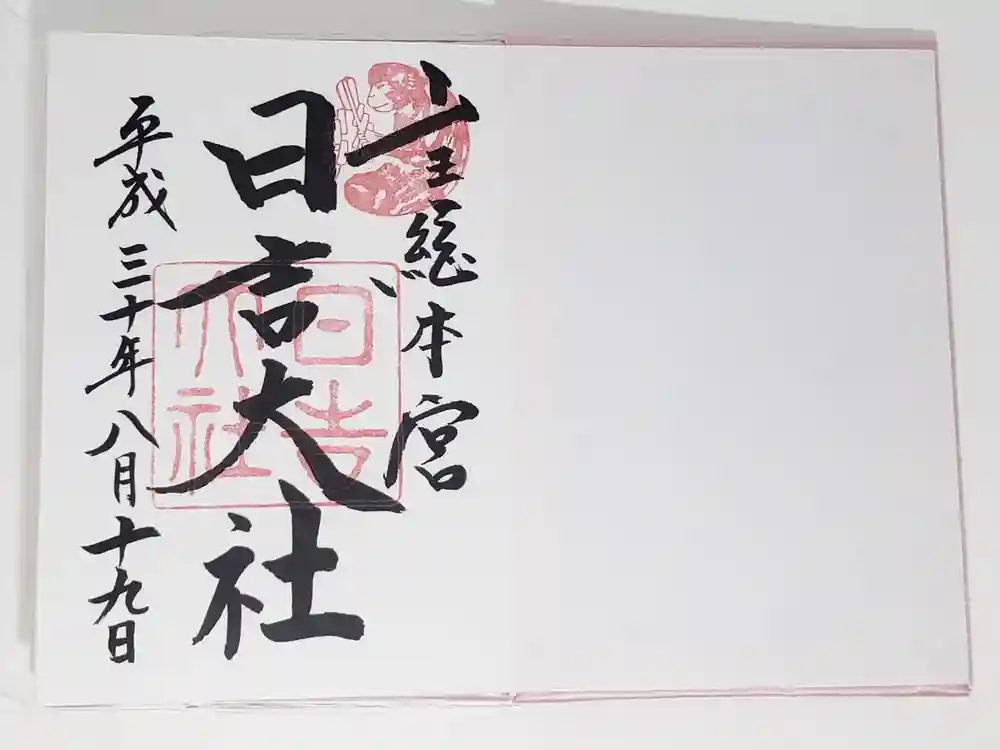 山王総本宮
日吉大社
平成三十年八月十九日
日吉
大社